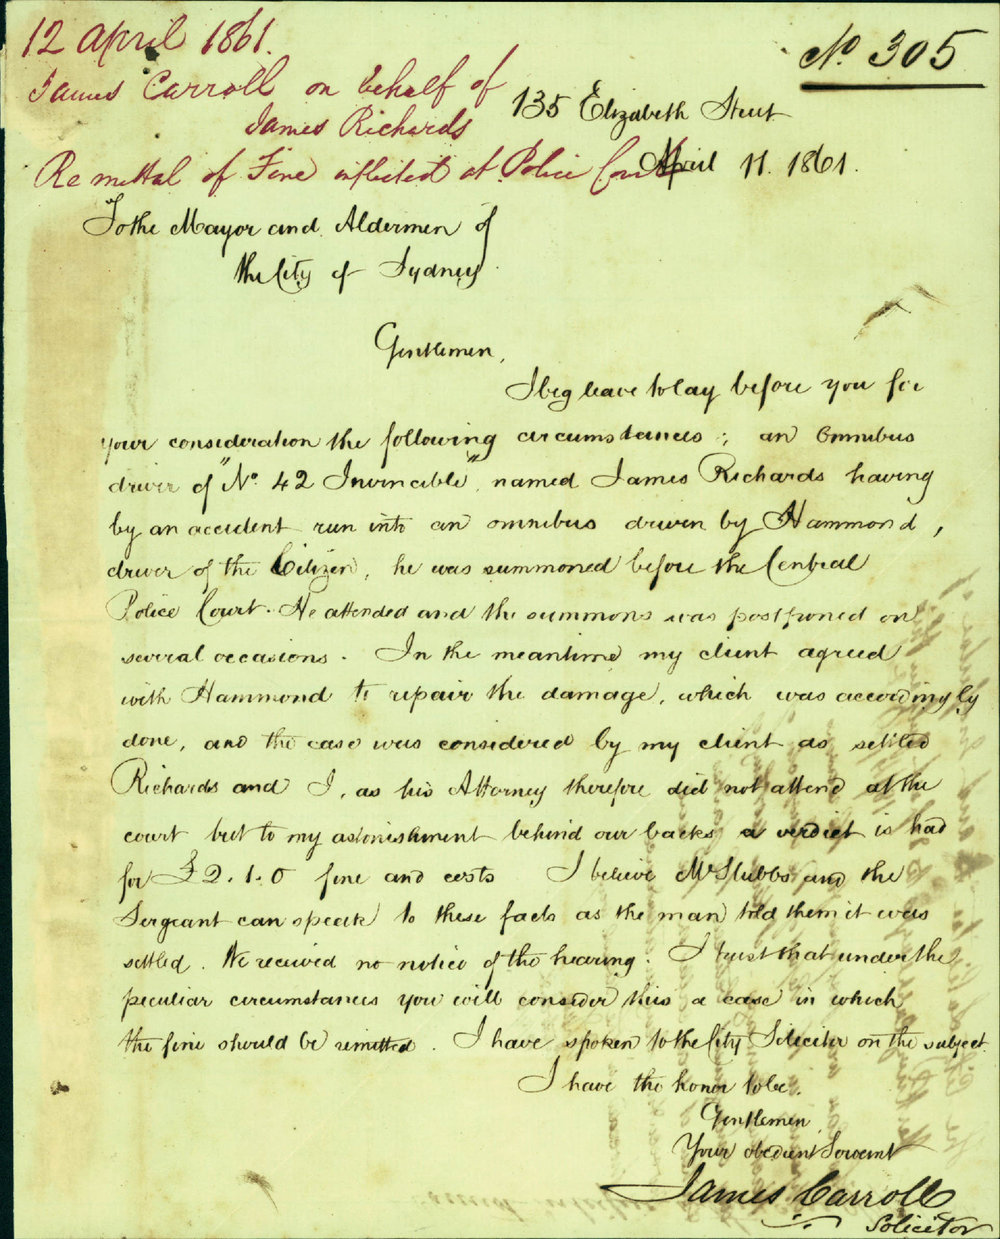 12 April 1861.
No 305
James Carroll on behalf of
James Richards
135 Elizabeth Street
Remittal of Fine inflicted at Police Court
April 11. 1861.
To the Mayor and Aldermen of
the City of Sydney.
Gentlemen,
I beg leave to lay before you for
your consideration the following circumstances; an Omnibus
driver of "No. 42 Invincible", named James Richards having
by an accident run into an omnibus driven by Hammond,
driver of the Citizen, he was summoned before the Central
Police Court. He attended and the summons was postponed on
several occasions. In the meantime my client agreed
with Hammond to repair the damage, which was accordingly
done, and the case was considered by my client as settled
Richards and I, as his Attorney therefore did not attend at the
court but to my astonishment behind our backs a verdict is had
for £2.1.0 fine and costs I believe Mr Stubbs and the
Sergeant can speak to these facts as the man told them it was
settled. We received no notice of the hearing. I trust that under the
peculiar circumstances you will consider this a case in which
the fine should be remitted. I have spoken to the City Solicitor on the subject.
I have the honor to be.
Gentlemen,
Your obedient Servant
James Carroll
Solicitor